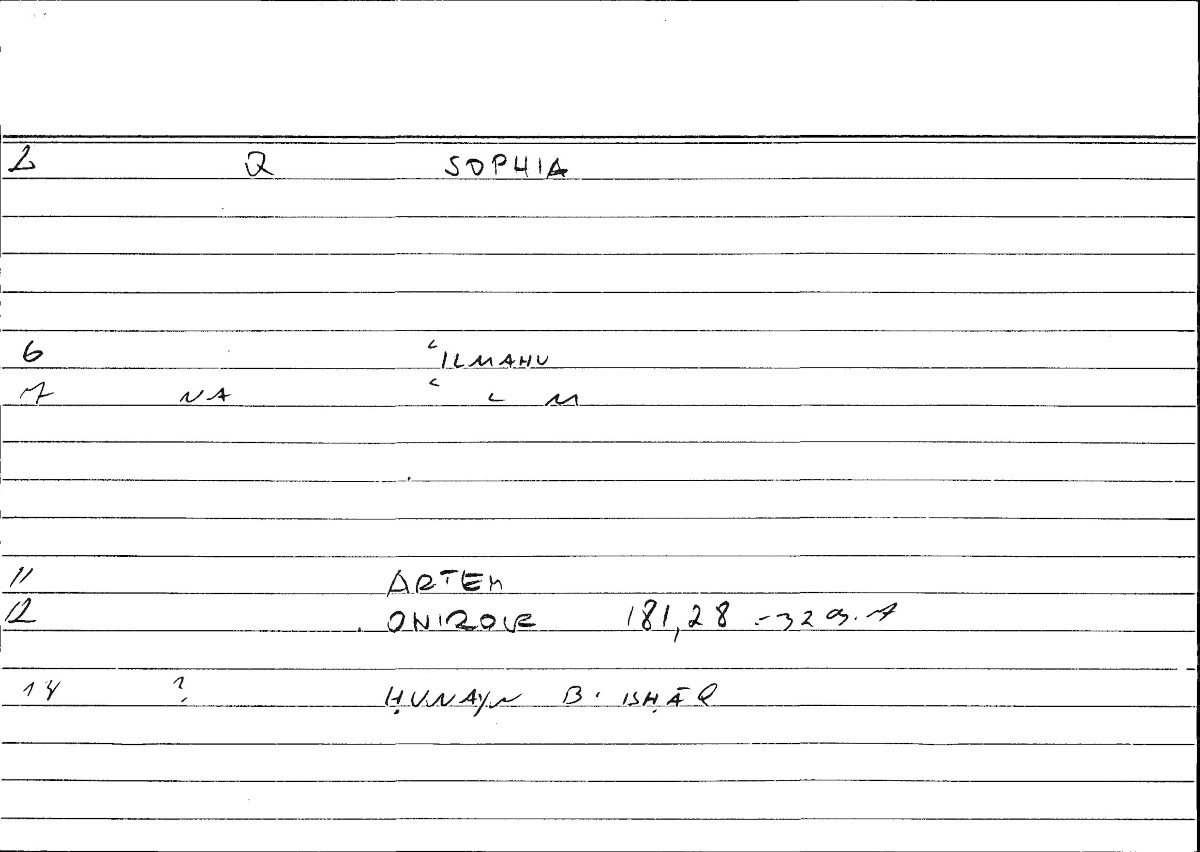 2 Q SOPHIA
6 ʿILMAHU
7 NA ʿ L M
11 ARTEM
12 ONIROCR 181,28 -329.7
14 ? ḤUNAYN B. ISḤĀQ